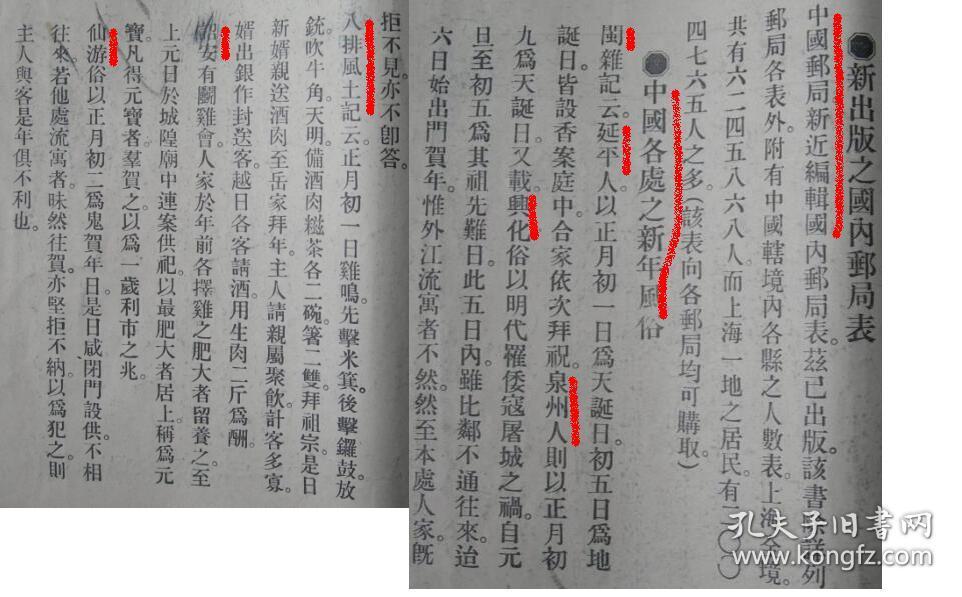 ●新出版之國內郵局表
中國郵局新近編輯國內郵局表。茲已出版。該書 詳列
郵局各表外。附有中國轄境內各縣之人數表。上海全境。
共有六二四五八六八人。而上海一地之居民。有二〇〇
四七六五人之多。(該表向各郵局均可購取。)
●中國各處之新年風俗
閩雜記云。延平人。以正月初一日爲天誕日。初五日爲地
誕日。皆設香案庭中。合家依次拜祝。泉州人則以正月初
九爲天誕日。又載興化俗以明代罹倭寇屠城之禍。自元
旦至初五爲其祖先難日。此五日內。雖比鄰不通往來。迨
六日始出門賀年。惟外江流寓者不然。然至本處人家。旣
拒不見。亦不卽答。
八排風土記云。正月初一日雞鳴。先擊米箕。後擊鑼鼓。放
銃吹牛角。天明。備酒肉糍茶各二碗。箸二雙。拜祖宗。是日
新婿親送酒肉至岳家拜年。主人請親屬聚飮。計客多寡。
婿出銀作封送客。越日各客請酒。用生肉二斤爲酬。
安有鬭雞會。人家於年前各擇雞之肥大者留養之。至
上元日於城隍廟中連案供祀。以最肥大者居上。稱爲元
寶。凡得元寶者。羣賀之。以爲一歲利市之兆。
仙游俗以正月初二爲鬼賀年日。是日咸閉門設供。不相
往來。若他處流寓者。昧然往賀。亦堅拒不納。以爲犯之。則
主人與客是年俱不利也。
孔夫子旧书网
www.kongfz.com